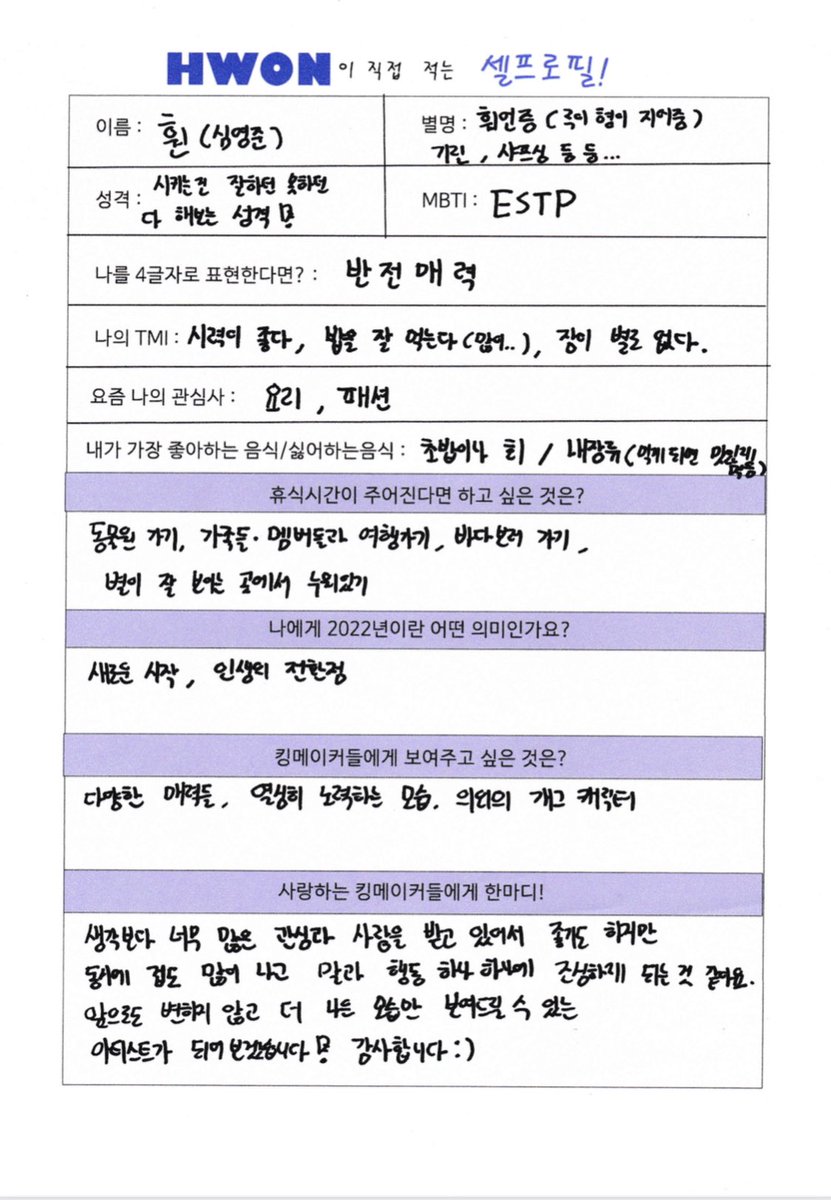 HWON이 직접 적는 셀프로필!
이름 : 훤 (심영준)
별명 : 훤언증 (루이 형이 지어줌)
기린, 샤프심 등 등...
성격 : 시키는건 잘하던 못하던
다 해보는 성격!
MBTI : ESTP
나를 4글자로 표현한다면? : 반전매력
나의 TMI : 시력이 좋다, 밥을 잘 먹는다(많이..), 잠이 별로 없다.
요즘 나의 관심사 : 요리, 패션
내가 가장 좋아하는 음식/싫어하는음식 : 초밥이나 회 / 내장류 (먹게 되면
휴식시간이 주어진다면 하고 싶은 것은?
동물원 가기, 가족들·멤버들과 여행가기, 바다보러 가기,
별이 잘 보이는 곳에서 누워있기
나에게 2022년이란 어떤 의미인가요?
새로운 시작, 인생의 전환점
킹메이커들에게 보여주고 싶은 것은?
다양한 매력들, 열심히 노력하는 모습, 의외의 개그 캐릭터
사랑하는 킹메이커들에게 한마디!
생각보다 너무 많은 관심과 사랑을 받고 있어서 좋기도 하지만
동시에 겁도 많이 나고 말과 행동 하나 하나에 진심하게 되는 것 같아요.
앞으로도 변하지 않고 더 나은 모습만 보여드릴 수 있는
아티스트가 되어보겠습니다! 감사합니다 :)